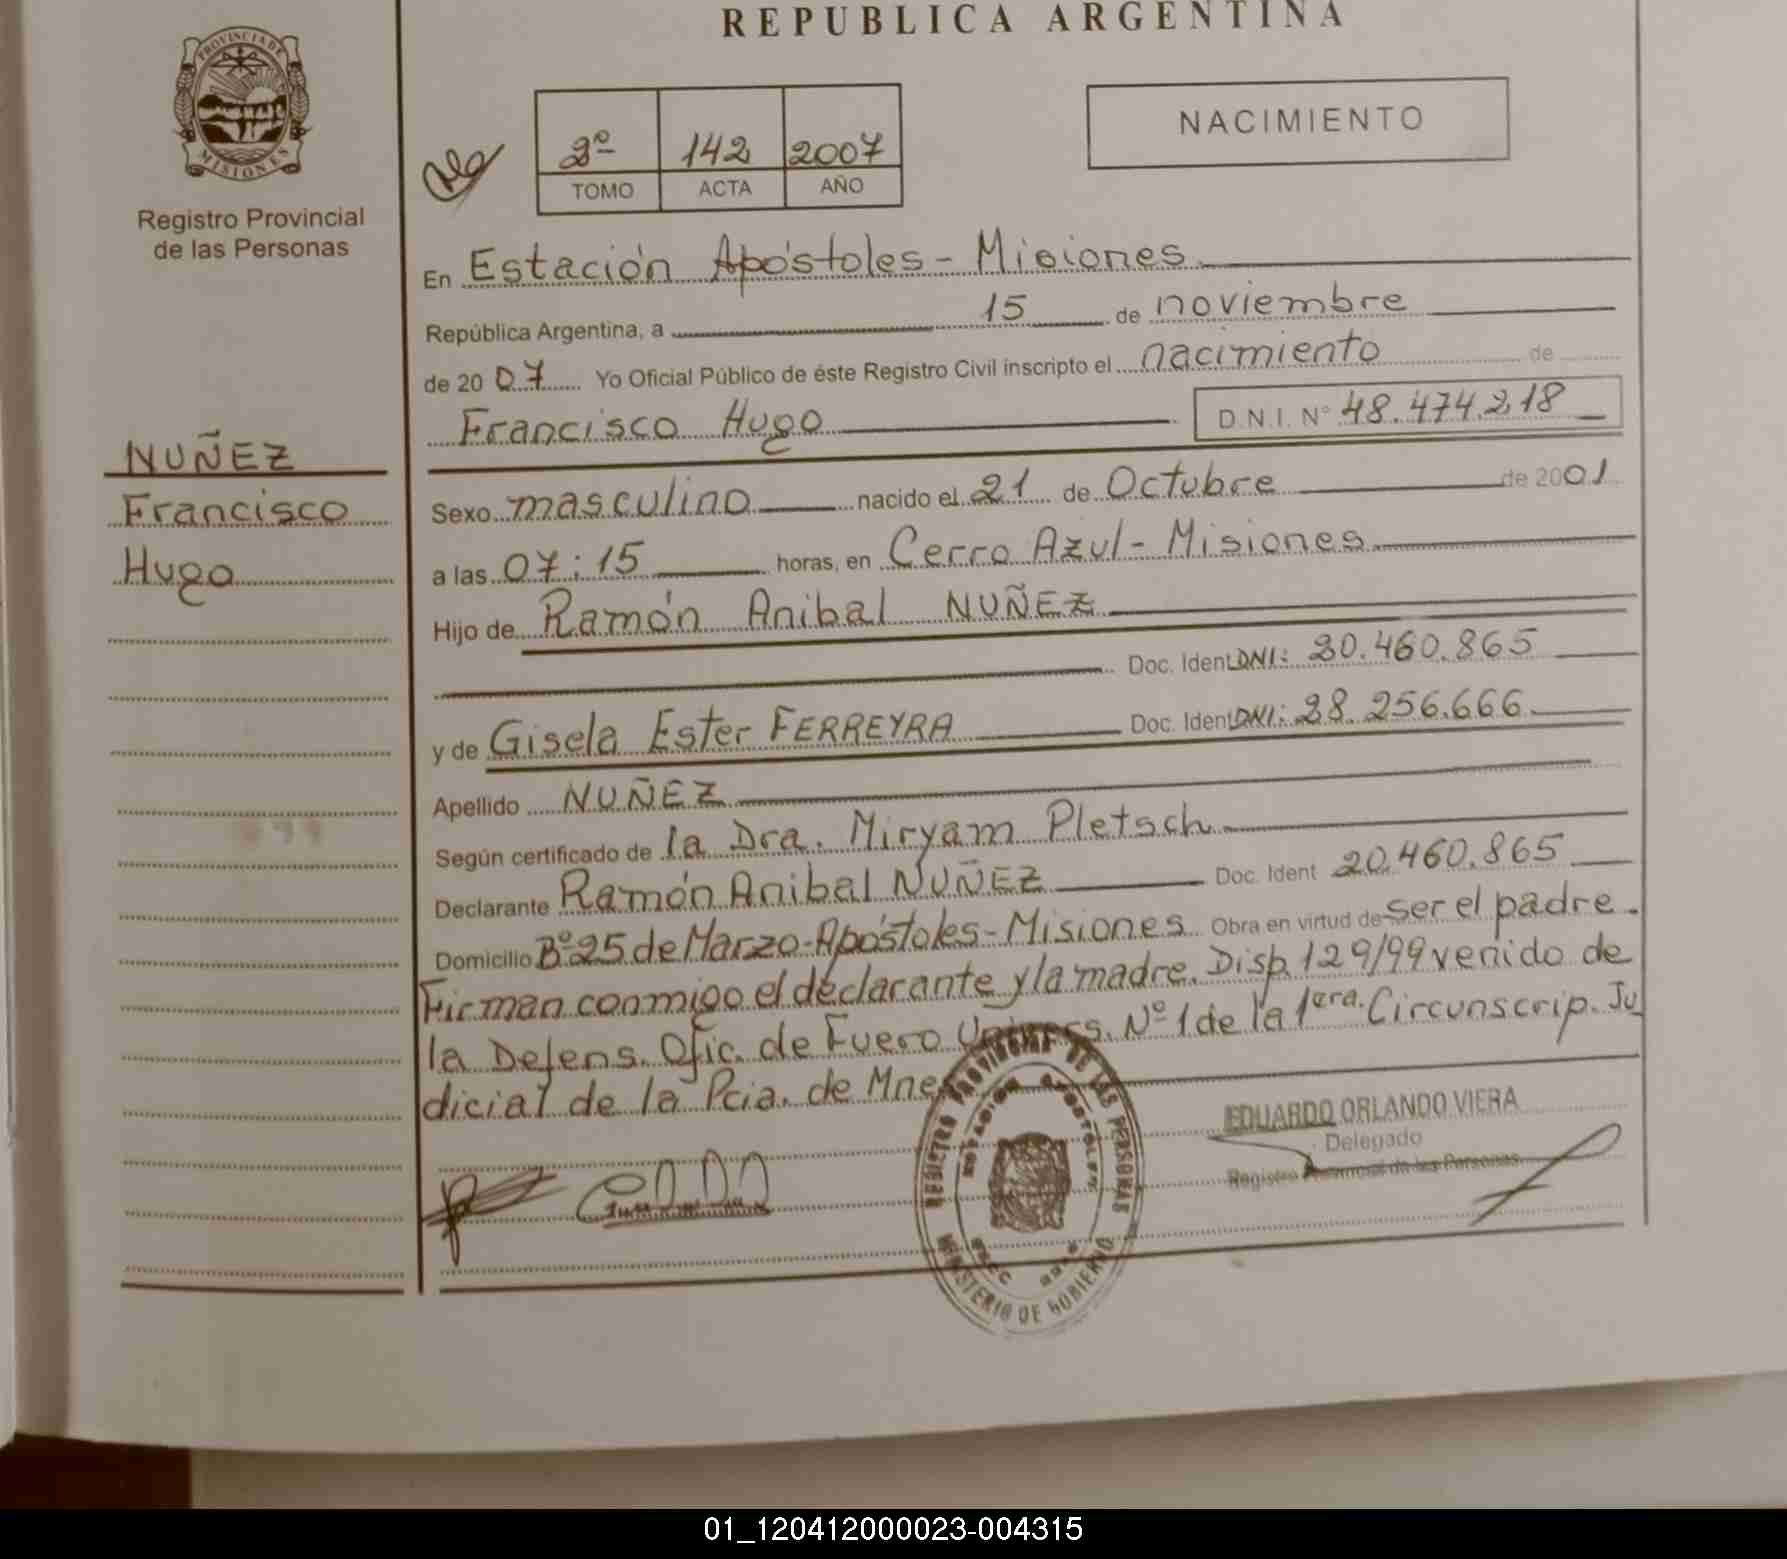 REPUBLICA ARGENTINA
PROVINCIA DE
MISIONES
Registro Provincial
de las Personas
2º 142 2007
TOMO ACTA AÑO
NACIMIENTO
En Estación Apóstoles - Misiones
República Argentina, a 15 de noviembre
de 20 07 Yo Oficial Público de éste Registro Civil inscripto el nacimiento de
Francisco Hugo D.N.I. Nº 48.474.218
NUÑEZ
Francisco
Hugo
Sexo masculino nacido el 21 de Octubre de 2001
a las 07:15 horas, en Cerro Azul - Misiones
Hijo de Ramón Anibal NUÑEZ
Doc. Ident DNI: 20.460.865
y de Gisela Ester FERREYRA Doc. Ident DNI: 28.256.666
Apellido NUÑEZ
Según certificado de la Dra. Miryam Pletsch
Declarante Ramón Anibal NUÑEZ Doc. Ident 20.460.865
Domicilio Bº 25 de Marzo - Apóstoles - Misiones Obra en virtud de ser el padre.
Firman conmigo el declarante y la madre. Disp. 129/99 venido de
la Defens. Ofic. de Fuero Univers. Nº 1 de la 1era. Circunscrip. Ju
dicial de la Pcia. de Mnes
EDUARDO ORLANDO VIERA
Delegado
Registro Provincial de las Personas
REGISTRO PROVINCIAL DE LAS PERSONAS
ESTACION APOSTOLES
MINISTERIO DE GOBIERNO
01_120412000023-004315